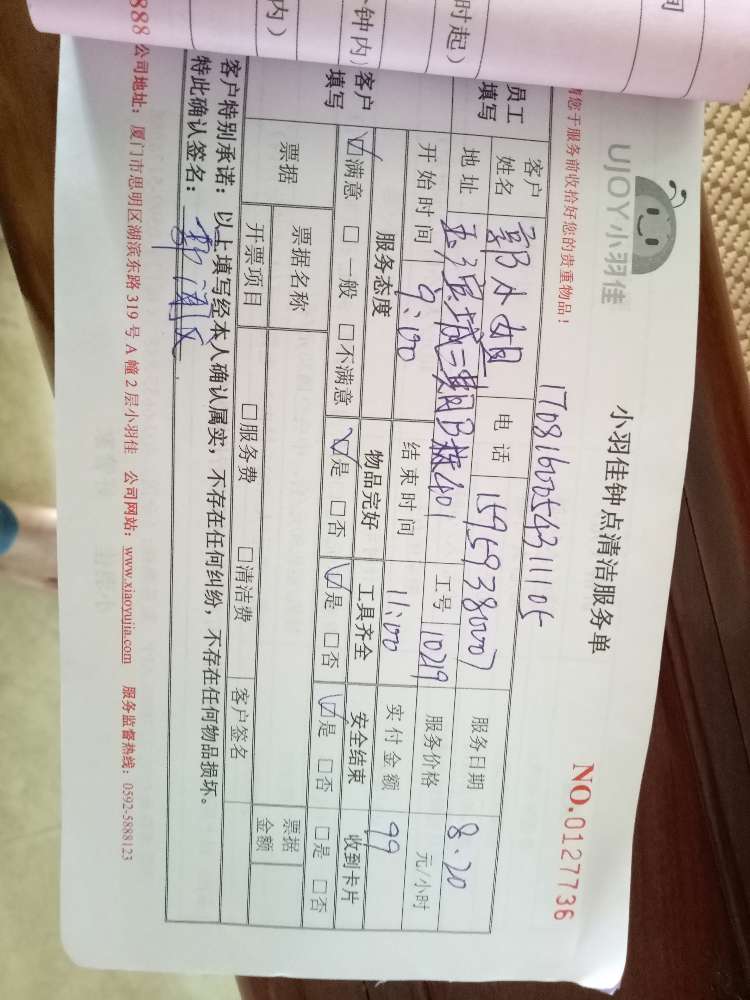 间
时起)
钟内)
内)
UJOY小羽佳
小羽佳钟点清洁服务单
NO.0127736
您于服务前收拾好您的贵重物品!
1708160054311105
员工
填写
客户
姓名
郭小姐
电话
15959380007
服务日期
8.20
地址
三期B栋401
工号
10219
服务价格
元/小时
开始时间
9:00
结束时间
11:00
实付金额
99
客户
填写
服务态度
物品完好
工具齐全
安全结束
收到卡片
☑满意 □一般 □不满意
☑是 □否
☑是 □否
☑是 □否
□是 □否
票据
票据名称
票据
金额
开票项目
□服务费 □清洁费
客户签名
客户特别承诺:以上填写经本人确认属实,不存在任何纠纷,不存在任何物品损坏。
特此确认签名:
888 公司地址:厦门市思明区湖滨东路319号A幢2层小羽佳 公司网站:www.xiaoyujia.com 服务监督热线:0592-5888123